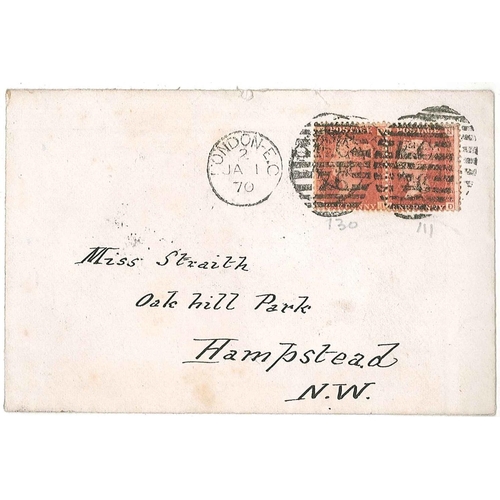 LONDON-E.C
2
JA 1
70
POSTAGE POSTAGE
130 111
Miss Straith
Oak hill Park
Hampstead
N.W.